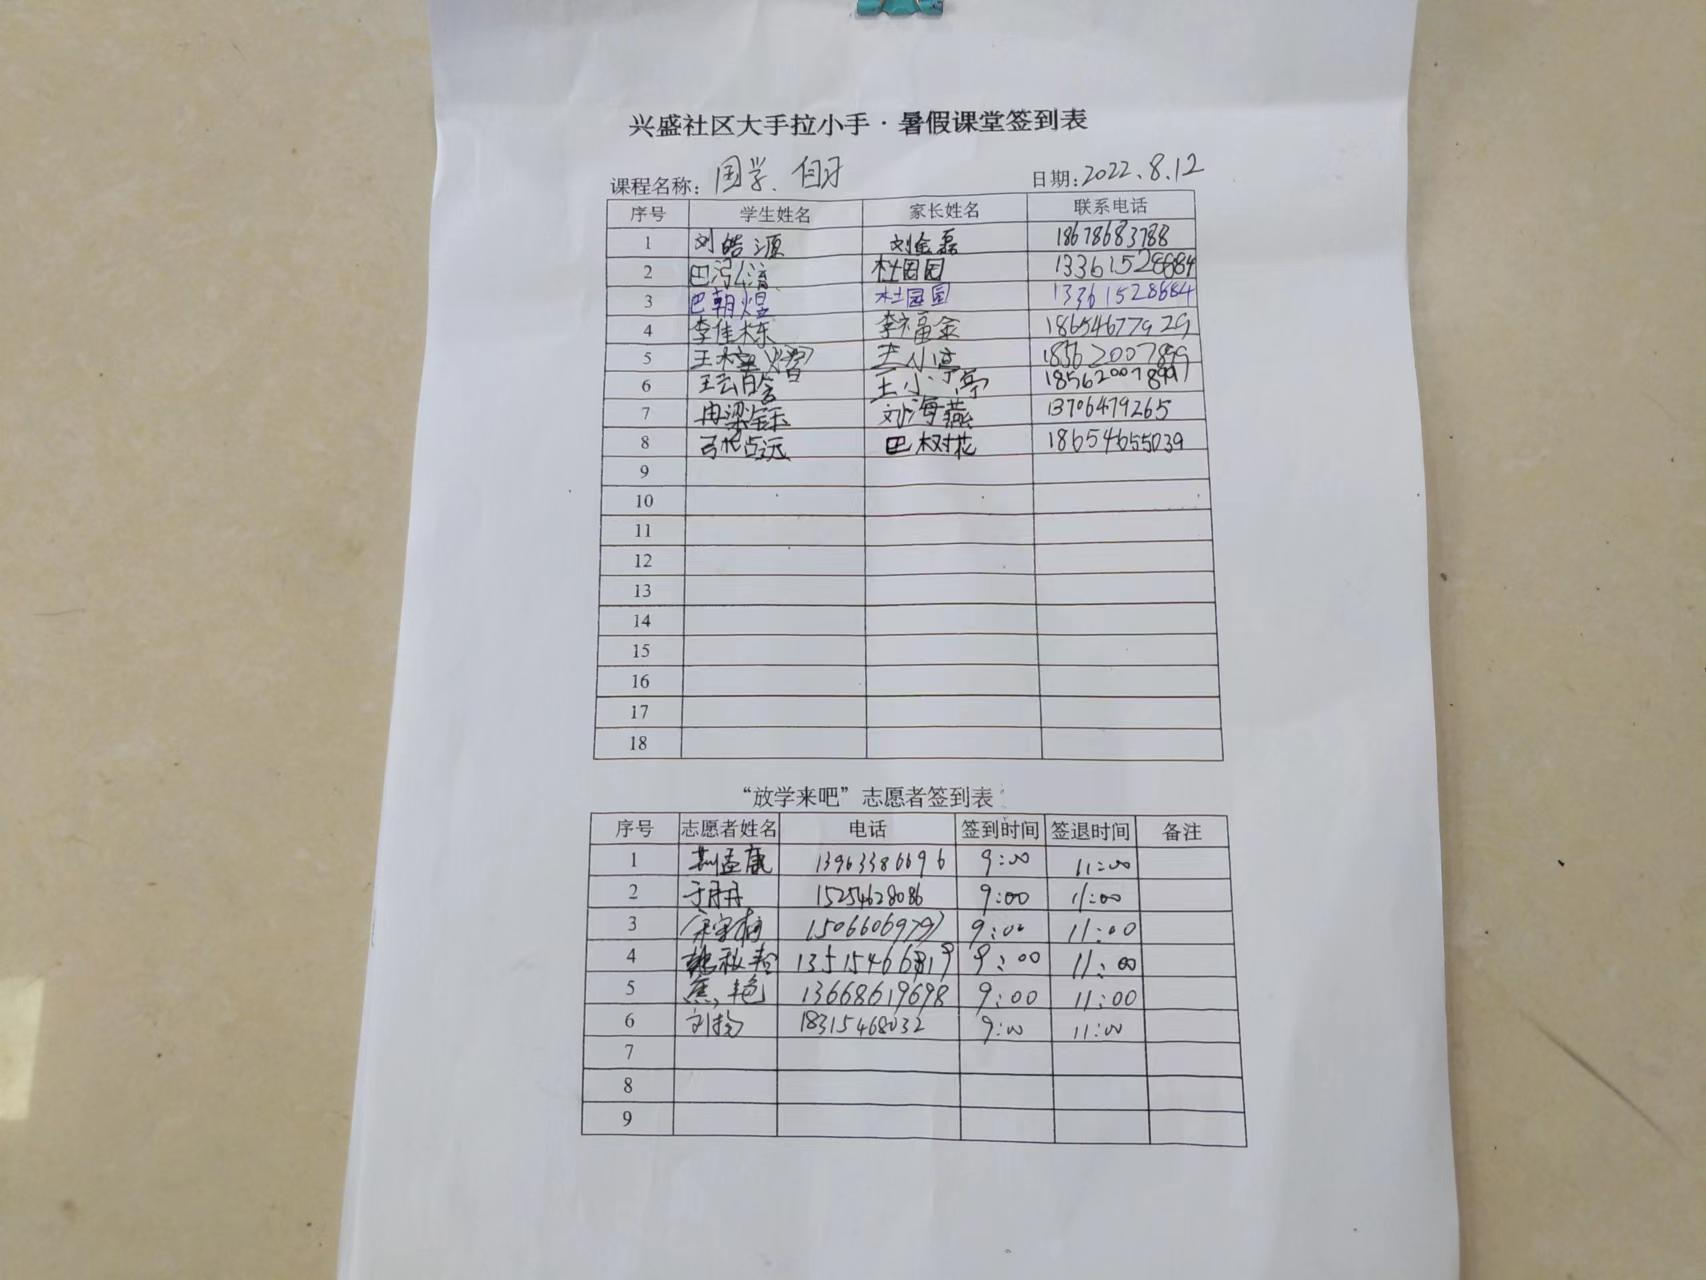 兴盛社区大手拉小手·暑假课堂签到表
课程名称: 国学、自习 日期: 2022.8.12
序号 学生姓名 家长姓名 联系电话
1 刘皓源 刘金磊 18678683788
2 巴 杜园园 13361528684
3 巴朝煜 杜园园 13361528684
4 李佳栋 李福金 18654677929
5 王 王小亭 18562007899
6 王云晗 王小亭 18562007899
7 冉梁钰 刘海燕 13706479265
8 巴树花 18654655039
9
10
11
12
13
14
15
16
17
18
“放学来吧”志愿者签到表
序号 志愿者姓名 电话 签到时间 签退时间 备注
1 荆孟康 13963386696 9:00 11:00
2 于丹丹 15254628086 9:00 11:00
3 15066069797 9:00 11:00
4 9:00 11:00
5 焦艳 13668619698 9:00 11:00
6 刘扬 18315468032 9:00 11:00
7
8
9